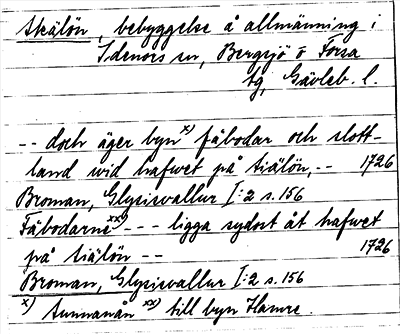 Skälön, bebyggelse å allmänning i
Idenors sn, Bergsjö o Forsa
tg, Gävleb. l.
-- doch äger byn x) fäbodar och slott-
land wid hafwet på Skiälön, -- 1726
Broman, Glysisvallur I:2 s. 156
Fäbodarne xx) --- ligga sydost åt hafwet
på Skiälön -- 1726
Broman, Glysisvallur I:2 s. 156
x) Tunnanån xx) till byn Hamre.